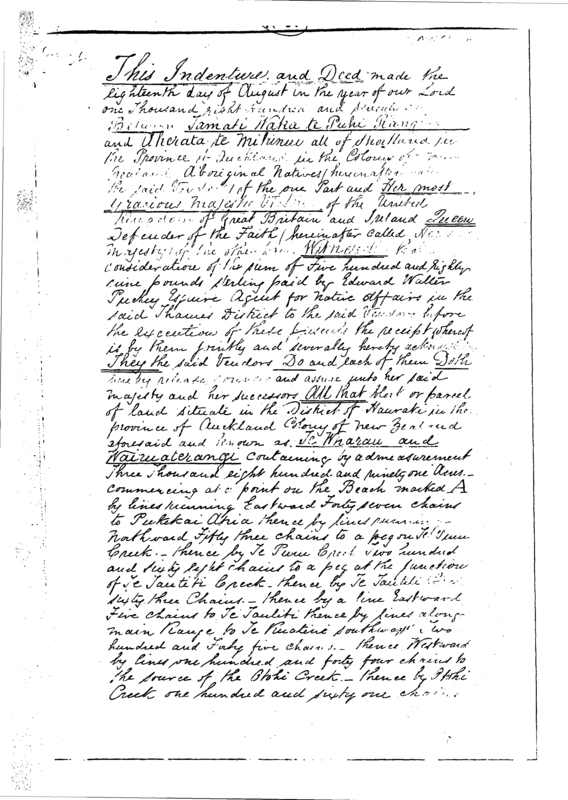 This Indenture and Deed made the
Eighteenth day of August in the year of our Lord
one Thousand eight hundred and
Between Tamati Waka te Puhi
and Aherata te Mihinui all of Shortland in
the Province of Auckland in the Colony of
Zealand Aboriginal Natives (hereinafter
the said Vendors) of the one Part and Her most
Gracious Majesty Victoria of the United
Kingdom of Great Britain and Ireland Queen
Defender of the Faith (hereinafter called Her
Majesty) of the other Witnesseth
consideration of the sum of Five hundred and Eighty
nine pounds sterling paid by Edward Walter
Puckey Esquire Agent for Native Affairs in the
said Thames District to the said Vendors before
the execution of these presents the receipt whereof
is by them jointly and severally hereby
They the said Vendors Do and each of them Doth
hereby release convey and assure unto her said
Majesty and her successors All that block or parcel
of land situate in the District of Hauraki in the
province of Auckland Colony of New Zealand
aforesaid and known as Te Wharau and
Wairuaterangi containing by admeasurement
Three Thousand eight hundred and ninety one Acres. _
commencing at a point on the Beach marked A
by lines running Eastward Forty seven chains
to Pukekai Atua thence by lines running
Northward Fifty three chains to a peg on Te
Creek. _ thence by Te Puru Creek Two hundred
and sixty eight chains to a peg at the junction
of Te Tautiti Creek _ thence by Te Tautiti
sixty three Chains _ thence by a line Eastward
Five chains to Te Tautiti thence by lines along
main Range to Te southward Two
hundred and Forty five chains _ thence Westward
by lines one hundred and forty four chains to
the source of the Otohi Creek. _ thence by Otohi
Creek one hundred and sixty one chains